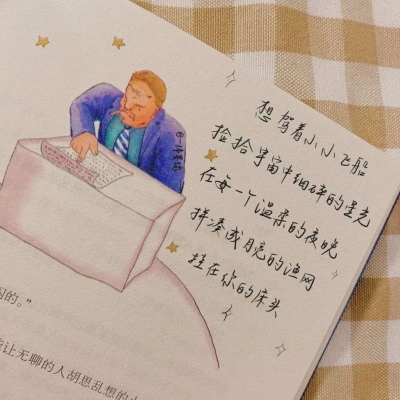 想驾着小小飞船
捡拾宇宙中细碎的星光
在每一个温柔的夜晚
拼凑成月亮的渔网
挂在你的床头
闪的。”
让无聊的人胡思乱想的